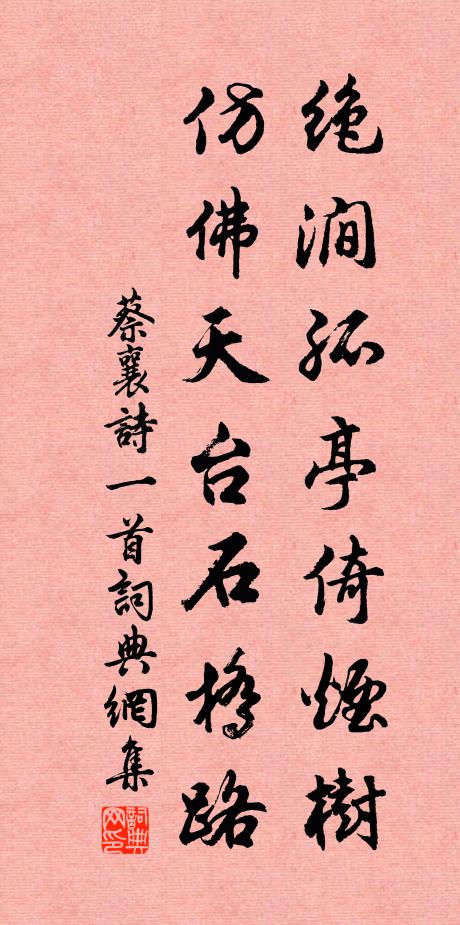 绝涧孤亭倚烟樹
仿佛天台石橋路
蔡襄詩一首詞典網集
詞典网印